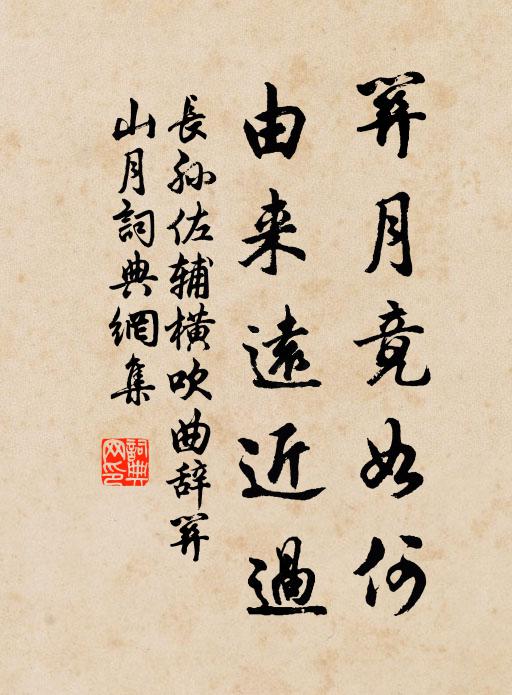 關月竟如何
由来遠近過
長孫佐辅橫吹曲辞關
山月詞典網集
詞典
网印